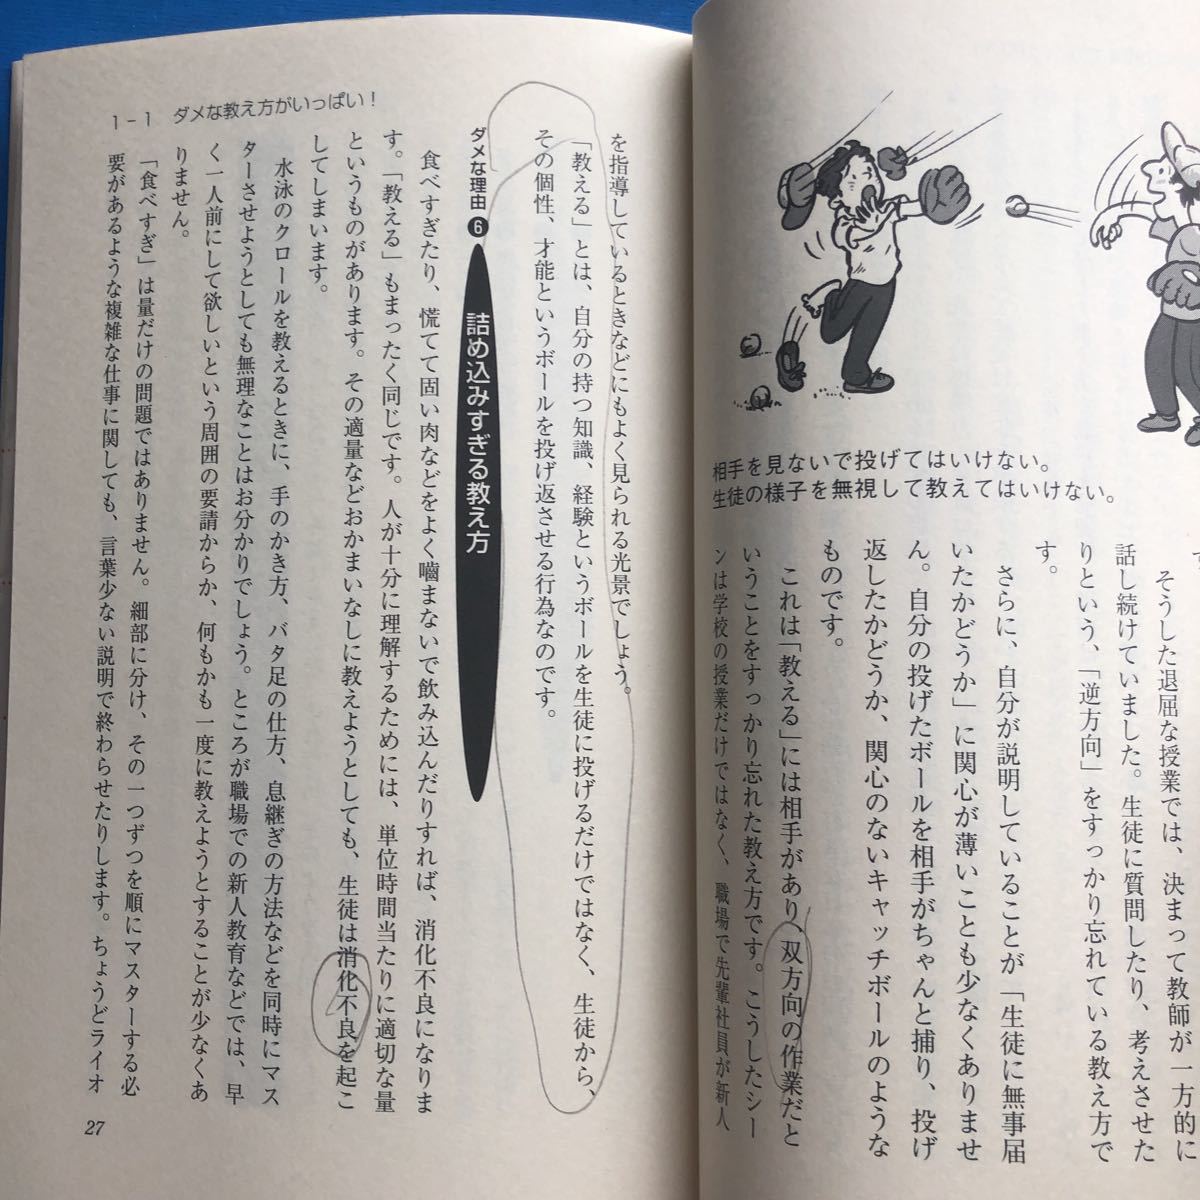 相手を見ないで投げてはいけない。
生徒の様子を無視して教えてはいけない。
そうした退屈な授業では、決まって教師が一方的に
話し続けていました。生徒に質問したり、考えさせた
りという、「逆方向」をすっかり忘れている教え方で
す。
さらに、自分が説明していることが「生徒に無事届
いたかどうか」に関心が薄いことも少なくありませ
ん。自分の投げたボールを相手がちゃんと捕り、投げ
返したかどうか、関心のないキャッチボールのような
ものです。
これは「教える」には相手があり、双方向の作業だと
いうことをすっかり忘れた教え方です。こうしたシー
ンは学校の授業だけではなく、職場で先輩社員が新人
1-1 ダメな教え方がいっぱい！
を指導しているときなどにもよく見られる光景でしょう。
「教える」とは、自分の持つ知識、経験というボールを生徒に投げるだけではなく、生徒から、
その個性、才能というボールを投げ返させる行為なのです。
ダメな理由❻ 詰め込みすぎる教え方
食べすぎたり、慌てて固い肉などをよく嚙まないで飲み込んだりすれば、消化不良になりま
す。「教える」もまったく同じです。人が十分に理解するためには、単位時間当たりに適切な量
というものがあります。その適量などおかまいなしに教えようとしても、生徒は消化不良を起こ
してしまいます。
水泳のクロールを教えるときに、手のかき方、バタ足の仕方、息継ぎの方法などを同時にマス
ターさせようとしても無理なことはお分かりでしょう。ところが職場での新人教育などでは、早
く一人前にして欲しいという周囲の要請からか、何もかも一度に教えようとすることが少なくあ
りません。
「食べすぎ」は量だけの問題ではありません。細部に分け、その一つずつを順にマスターする必
要があるような複雑な仕事に関しても、言葉少ない説明で終わらせたりします。ちょうどライオ
27